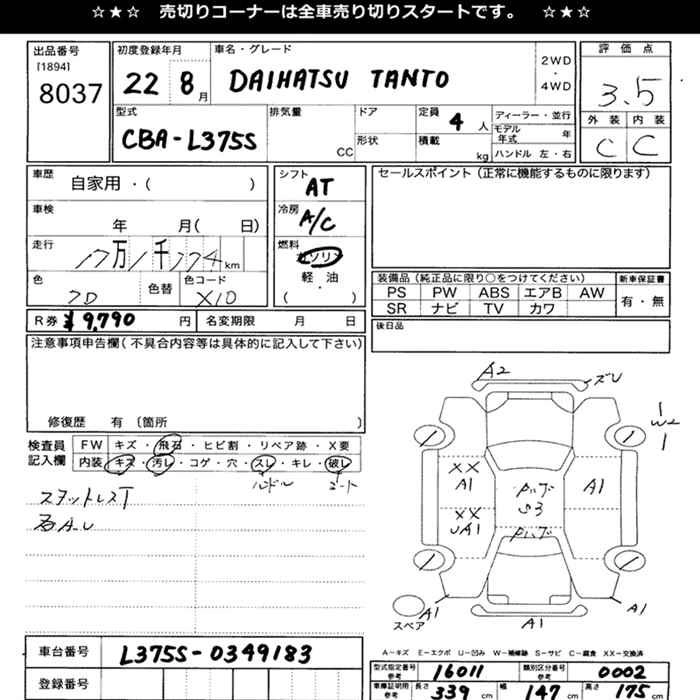 ☆★☆ 売切りコーナーは全車売り切りスタートです。 ☆★☆
出品番号
[1894]
8037
初度登録年月
22 8月
車名・グレード
DAIHATSU TANTO
2WD
・
4WD
評価点
3.5
外装 内装
C C
型式
CBA-L375S
排気量
CC
ドア
形状
定員
4人
積載
kg
ディーラー・並行
モデル年式 年
ハンドル 左・右
車歴
自家用・( )
車検
年 月( 日)
走行
万 千 km
色
色替
色コード
X10
シフト
AT
冷房
A/C
燃料
ガソリン
・
軽油
・
( )
セールスポイント(正常に機能するものに限ります)
装備品(純正品に限り○をつけてください)
PS PW ABS エアB AW
SR ナビ TV カワ
新車保証書
有・無
後日品
R券 ¥9,790円
名変期限 月 日
注意事項申告欄(不具合内容等は具体的に記入して下さい)
修復歴 有〔箇所 〕
検査員記入欄
FW キズ・飛石・ヒビ割・リペア跡・X要
内装 キズ・汚レ・コゲ・穴・スレ・キレ・破レ
スタットレスT
A2
W2
XX
A1
XX
UA1
S3
A1
A1
A1
A1
スペア
A-キズ E-エクボ U-凹み W-補修跡 S-サビ C-腐食 XX-交換済
車台番号
L375S-0349183
登録番号
型式指定番号
参考
16011
類別区分番号
参考
0002
車庫証明用
参考
長さ 339 cm
幅 147 cm
高さ 175 cm